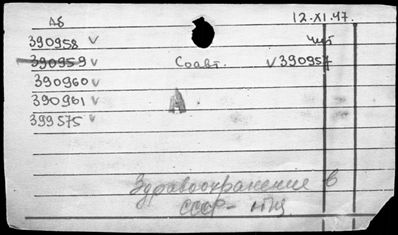 Аб 12.XI.47.
390958 v чит
390959 v Соавт. v 390957
390960 v
390961 v А
399575 v
Здравоохранение в
СССР-